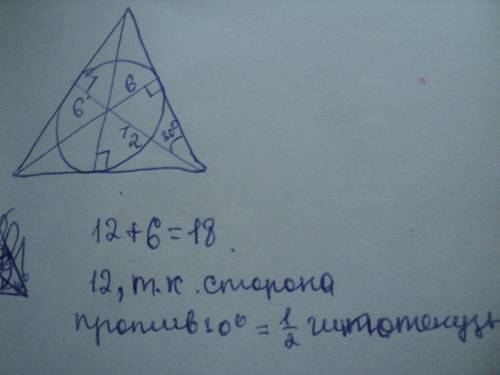 6 6
12 30°
12 + 6 = 18
12, т.к. сторона
против 30° = 1/2 гипотенузы